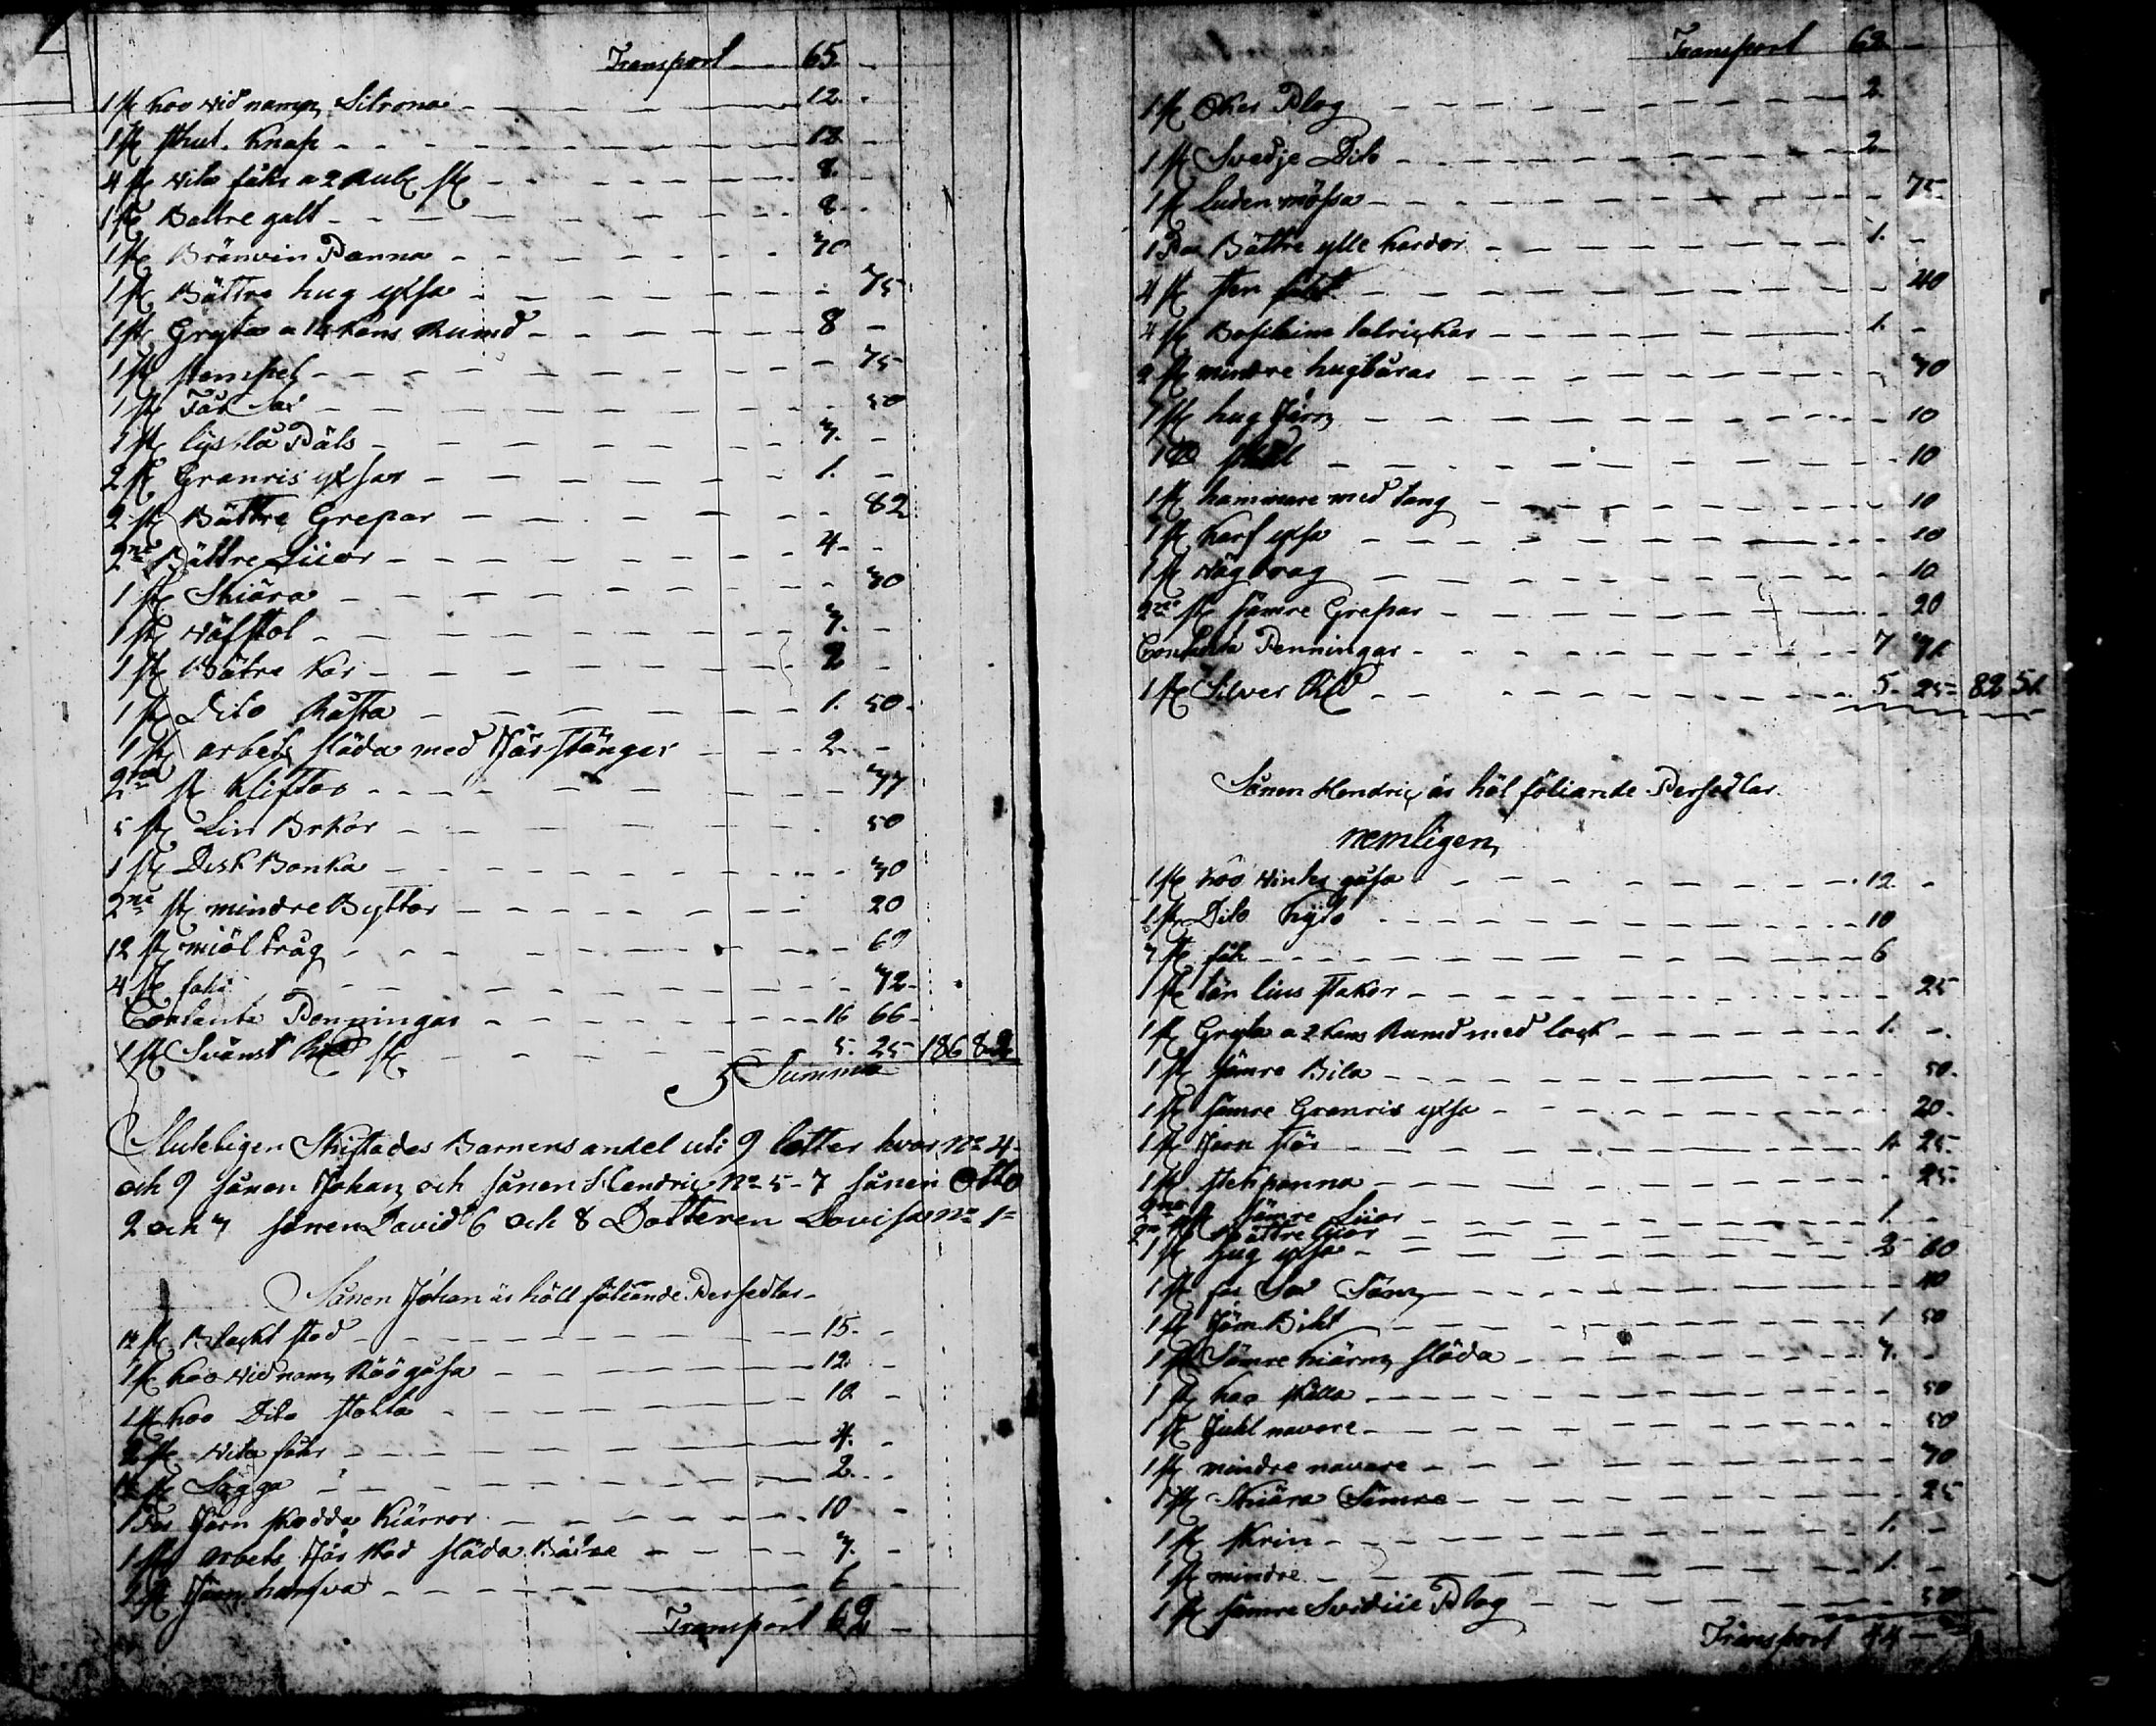 Transport 65 -
1 st koo vid namn Sitrona 12 -
1 st stut. Knap 12 -
4 st vita fåhr a 2 Rubl st 8 -
1 st Battre galt 8 -
1 st Bränvin Panna 30
1 st Bättre hug yxsa - 75
1 st Gryta a 14 kans Rumd 8 -
1 st stempel - 75
1 st Får sax - 50
1 st Päls 3 -
2 st Granris yxsor 1 -
2 st Bättre Grepar - 82
2ne Bättre Liior 4 -
1 st Skiära - 30
1 st Väfstol 3 -
1 st Bätre Kar 2 -
1 st Dito 1. 50
1 st arbets släda med stänger 2 -
2ne st Kliftor - 37
5 st Lin - 50
1 st Disk Bonka - 30
2ne st mindre Byttor 20
12 st miöl tråg - 69
4 st - 32
Contanta Penningar 16 66
1 st Svänst st 5. 25 186 82
Summa
Sluteligen Skiftades Barnens andel uti 9 lotter hvar No 4
och 9 sånen Johan och sånen Hendric No 5 - 7 sånen Otto
2 och 3 sånen David 6 och 8 Dotteren Lovisa No 1
Sånen Johan är höll föliande Persedlar
st stod 15 -
1 st koo vid namn Röögåsa 12 -
1 st koo Dito stolta 10 -
2 st vita fåhr 4 -
st Sögga 2 -
1 Par Järn skodda Kiärror 10 -
1 st arbets skod släda Bätre 3 -
2 st harfva 6 -
Transport 62 -
Transport 62 -
1 st Åker Plog 2
1 st Svedje Dito 2
1 st Luden mössa - 75
1 Par Bättre ylle kardor 1. -
4 st sten - 40
4 st talrickar 1. -
2 st mindre hugbårar - 30
1 st hug Järn - 10
1 - 10
1 st hammare med tång - 10
1 st karf yxsa - 10
1 st - 10
2ne st sämre Grepar - 20
Contanta Penningar 7 71
1 st Silver 5. 25 82 51
Sånen Hendric är höl föliande Persedlar
nemligen
1 st koo Vinter gåsa 12 -
1 st Dito 10
3 st fåh 6
1 st lius stakor - 25
1 st Gryta a 2 kans Rumd med lock 1. -
1 st sämre Bila - 50
1 st sämre Granris yxsa - 20
1 st Järn stör 1. 25
1 st stekpanna - 25
2ne st sämre Liior 1. -
2ne Bättre Liior
1 st hug yxsa 2 60
1 st får Sax Säm - 40
1 st 1 50
1 st Sämre släda 3. -
1 st koo skälla - 50
1 st navare - 50
1 st mindre navare - 30
1 st Skiära Sämre - 25
1 st skrin 1. -
1 st mindre 1. -
1 st sämre Svidiie Plog - 50
Transport 44 -